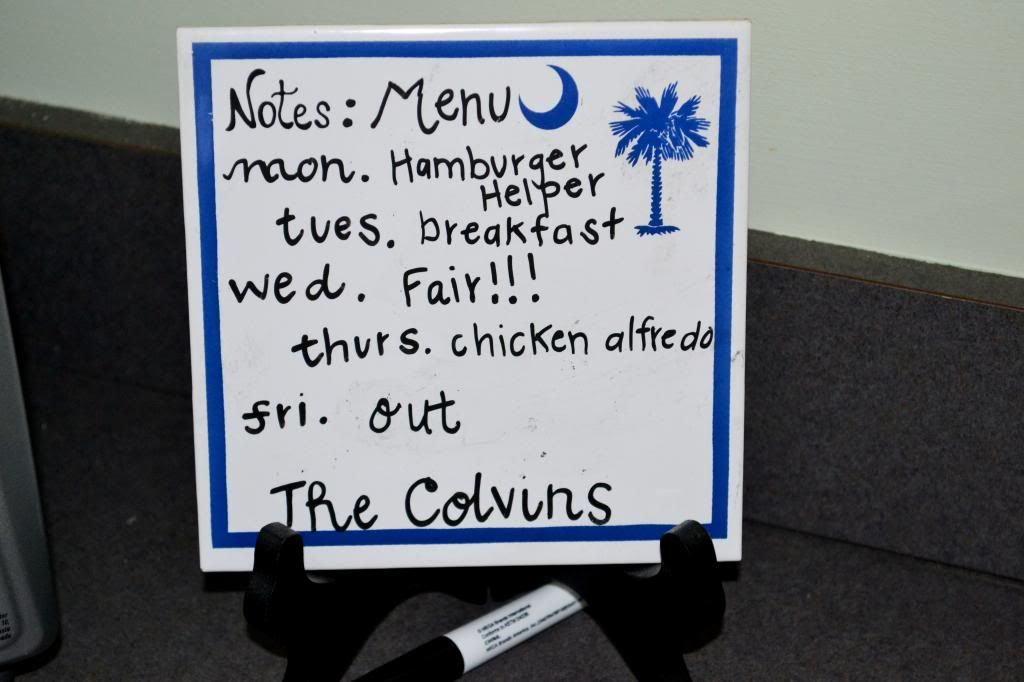 Notes: Menu
mon. Hamburger
Helper
tues. breakfast
wed. Fair!!!
thurs. chicken alfredo
fri. out
The Colvins